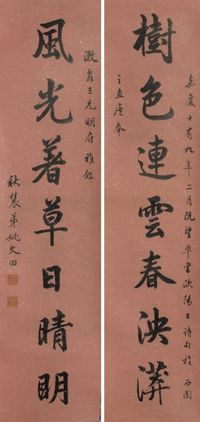 嘉慶十有九年二月既望書歐陽公詩句於西園
樹色連雲春泱漭
漱泉三兄明府雅鑑
風光著草日晴明
秋農弟姚文田